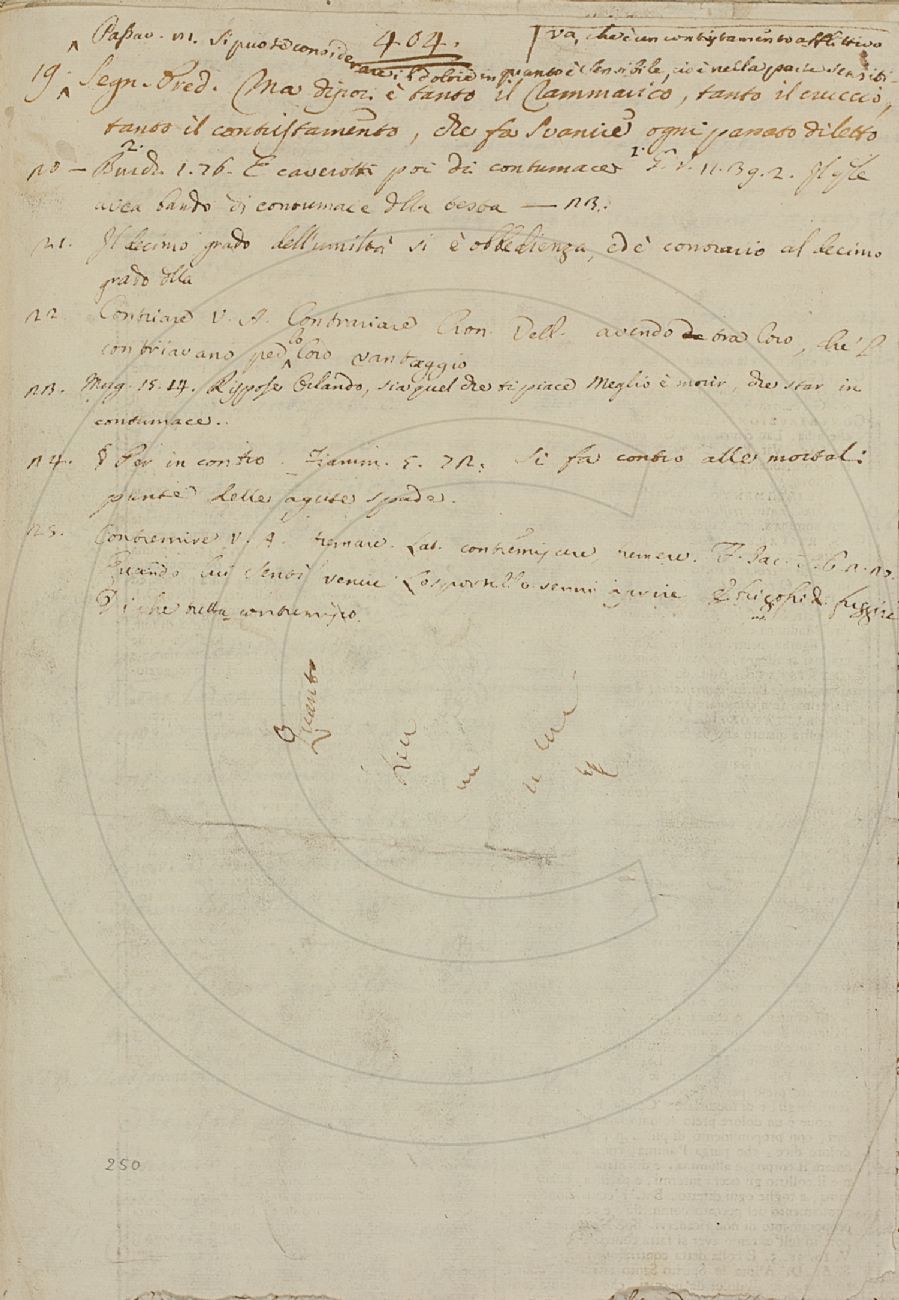 404.
Passav. 111. Si può è considerare il dolore in quanto è sensibile, cioè nella parte sensiti-
va, che è un contristamento afflittivo
19. Segn. Pred. Ma dipoi è tanto il rammarico, tanto il cruccio,
tanto il contristamento, che fa svanire ogni passato diletto
20 — 2. Burch. 1. 76. E caverotti poi di contumace 1. F. V. 11. 39. 2. Il qle
avea bando di contumace della testa — 23.
21. Il decimo grado dell'umiltà si è obbedienza, ed è contrario al decimo
grado dlla
22. Contriare V. A. Contrariare Cron. Vell. avendo tra loro, che
contriavano lo loro vantaggio
23. Morg. 15. 14. Rispose Orlando, sia quel che ti piace Meglio è morir, che star in
contumace.
24. § Per in contro Fiamm. 5. 72. Si fa contro alle mortali
punte delle agute spade.
25. Contremire V. A. tremare. Lat. contremiscere tremere. F. Jac. T. 6.
Quando sensi venire Lo sportello venni aprire fuggire
Di che nella contremisco.
Quanto
250